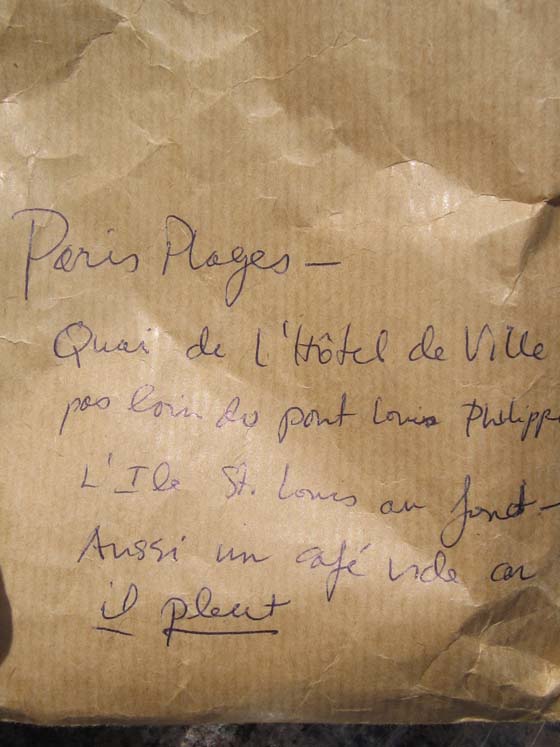 Paris Plages —
Quai de l'Hôtel de Ville
pas loin du pont Louis Philippe
L'Ile St. Louis au fond —
Aussi un café vide car
il pleut